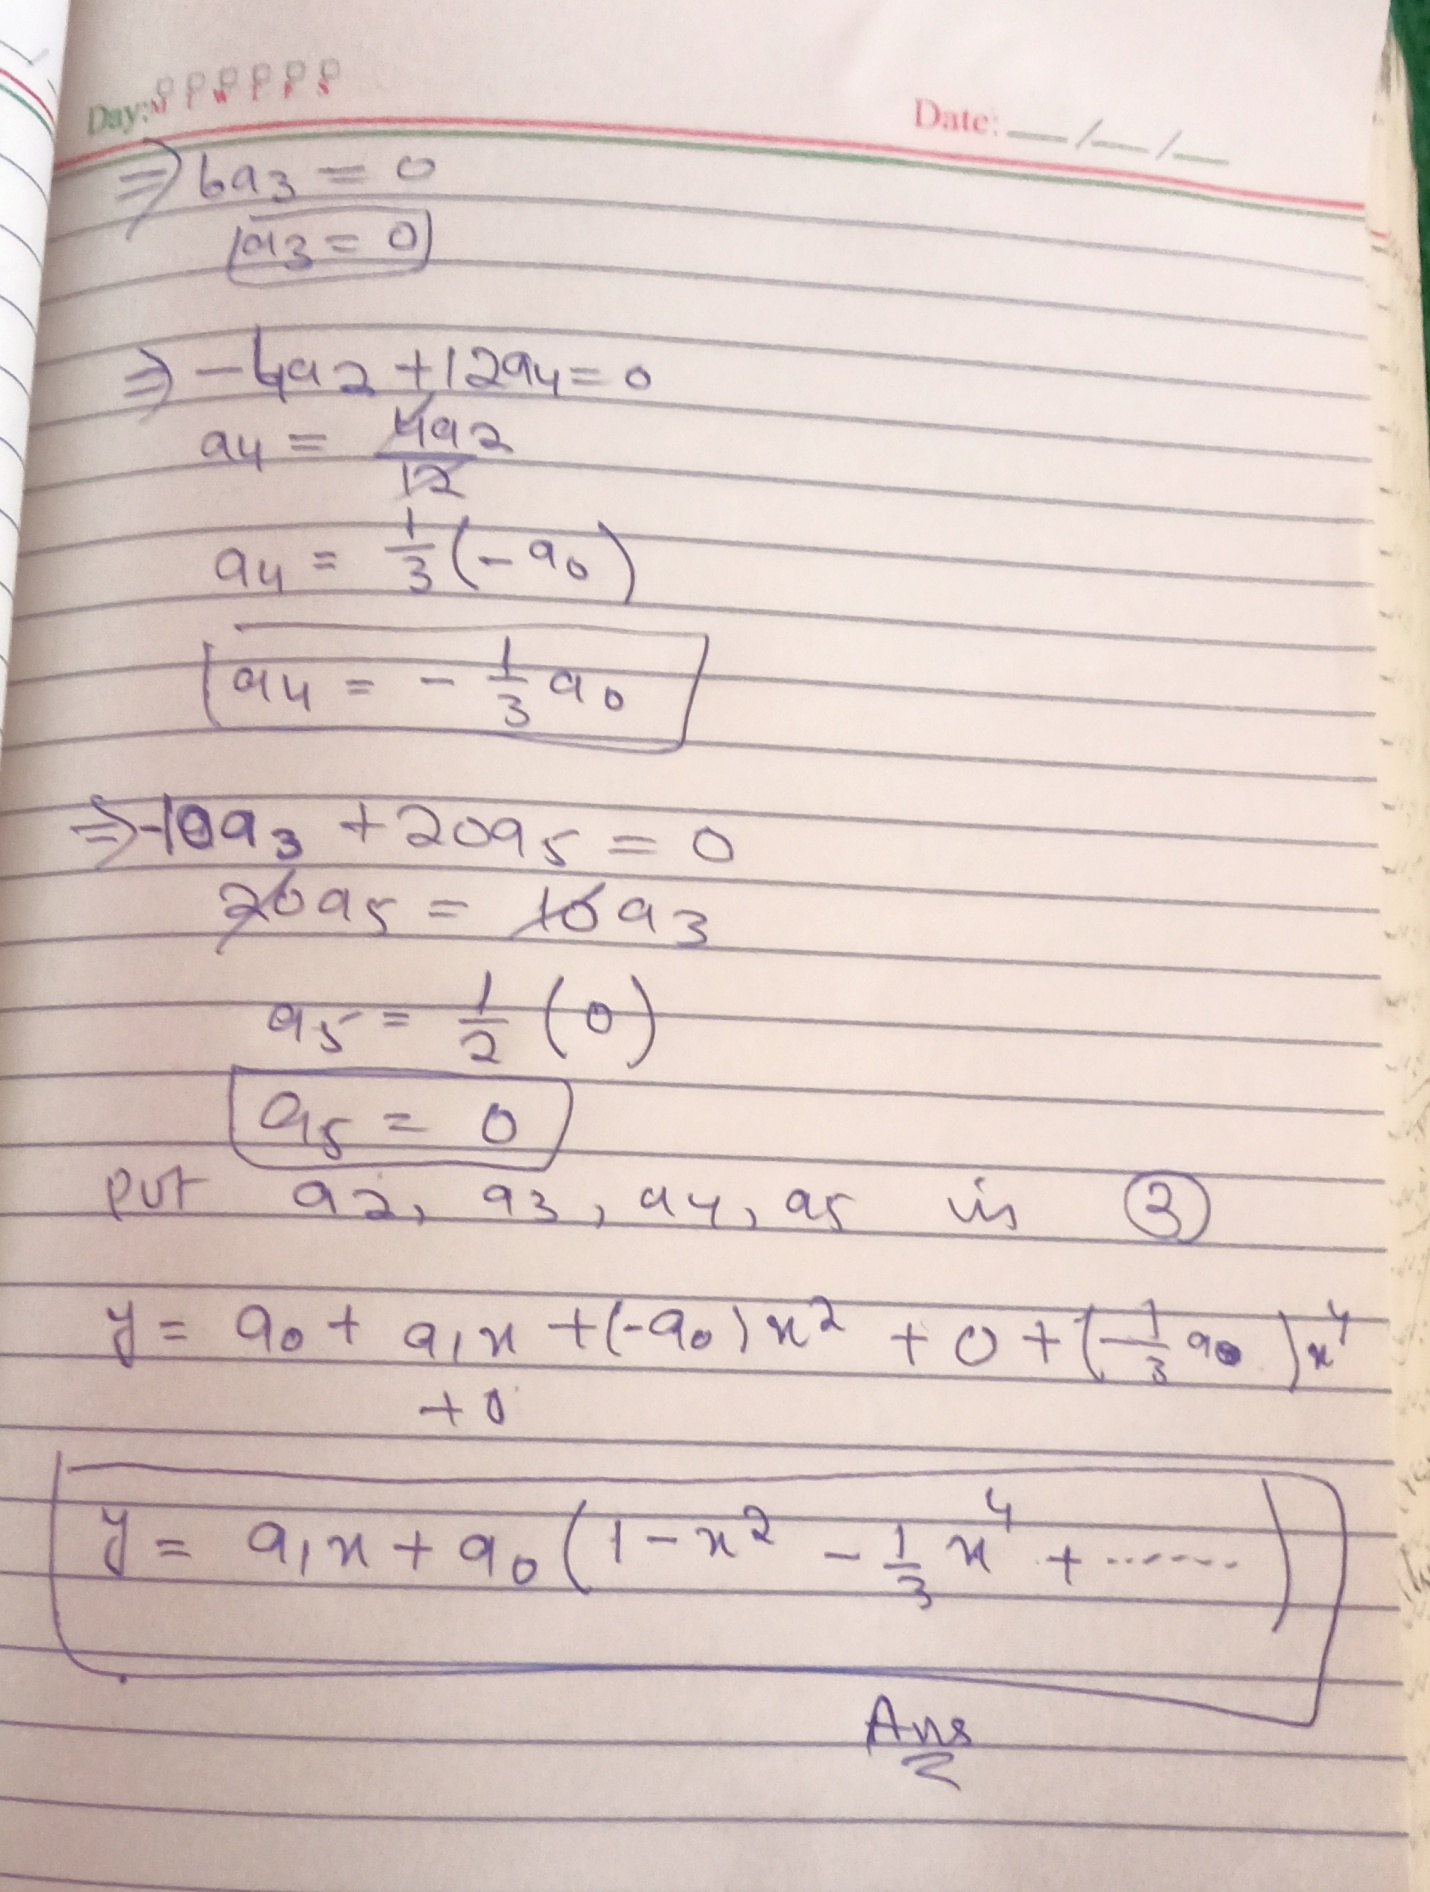 Day: M T W T F S
Date: __/__/__
⇒ 6a₃ = 0
a₃ = 0
⇒ -4a₂ + 12a₄ = 0
a₄ = 4a₂/12
a₄ = 1/3 (-a₀)
a₄ = - 1/3 a₀
⇒ -10a₃ + 20a₅ = 0
20a₅ = 10a₃
a₅ = 1/2 (0)
a₅ = 0
put a₂, a₃, a₄, a₅ in ③
y = a₀ + a₁x + (-a₀)x² + 0 + (-1/3 a₀)x⁴
+ 0
y = a₁x + a₀(1 - x² - 1/3 x⁴ + ......)
Ans